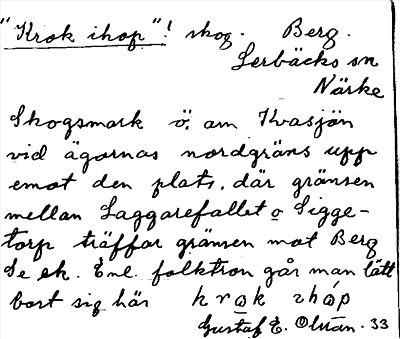 "Krok ihop"! skog. Berg.
Lerbäcks sn
Närke
Skogsmark ö. om Kvasjön
vid ägornas nordgräns upp
emot den plats, där gränsen
mellan Laggarefallet o Sigge-
torp träffar gränsen mot Berg
Se ek. Enl. folktron går man lätt
bort sig här krok ihop
Gustaf E. 33